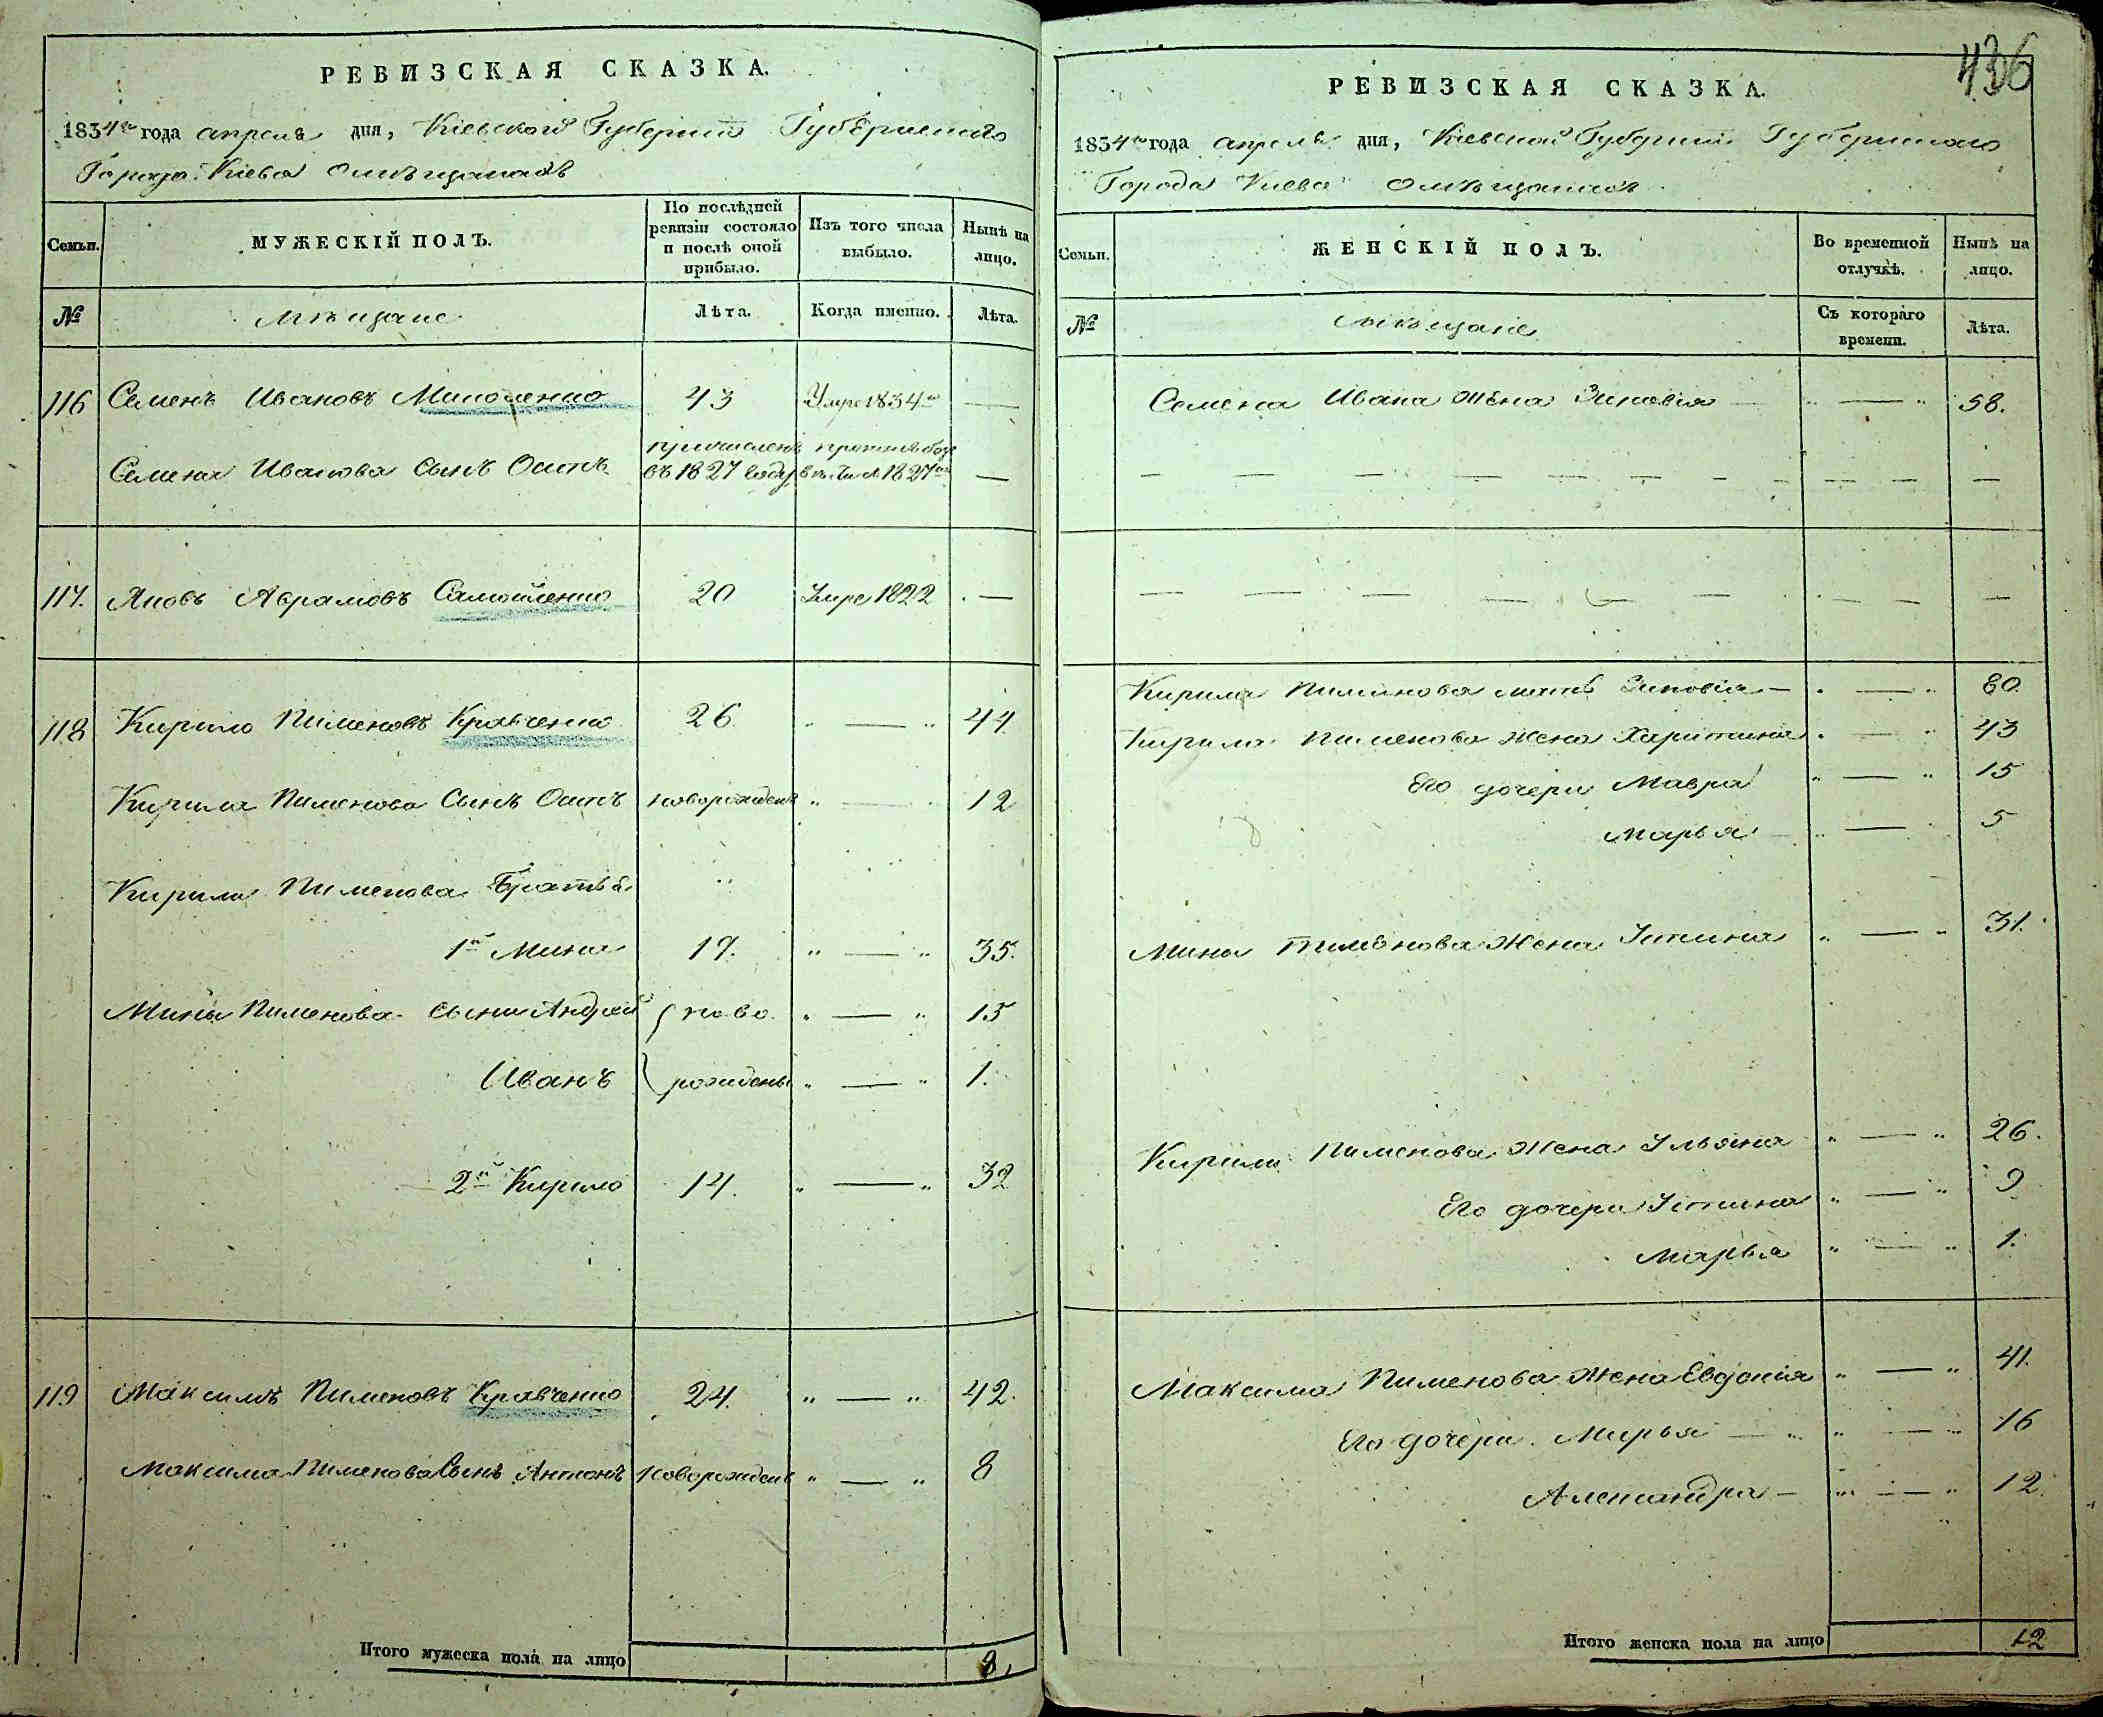 РЕВИЗСКАЯ СКАЗКА.
1834го года апреля дня, Кіевской Губерніи Губернскаго
Города Кіева омѣщанахъ
Семьи.
МУЖЕСКІЙ ПОЛЪ.
По послѣдней ревизіи состояло и послѣ оной прибыло.
Изъ того числа выбыло.
Нынѣ на лицо.
№
мѣщане
Лѣта.
Когда именно.
Лѣта.
116 Семенъ Ивановъ 43 Умре 1834го —
Семена Иванова Сынъ Осипъ причисленъ въ 1827 году 1827го —
117. Яковъ Аврамовъ Самойленко 20 Умре 1822 —
118 Кирило Пименовъ Кравченко 26 " — " 44.
Кирила Пименова Сынъ Осипъ новорожденъ " — " 12
Кирила Пименова Братья
1й Мина 17. " — " 35.
Мины Пименова Сыны Андрей ново " — " 15
Иванъ рождены " — " 1.
2й Кирило 14. " — " 32
119 Максимъ Пименовъ Кравченко 24. " — " 42.
Максима Пименова Сынъ Антонъ новорожденъ " — " 8
Итого мужеска пола на лицо 8.
436
РЕВИЗСКАЯ СКАЗКА.
1834го года апреля дня, Кіевской Губерніи Губернскаго
Города Кіева омѣщанахъ
Семьи.
ЖЕНСКІЙ ПОЛЪ.
Во временной отлучкѣ.
Нынѣ на лицо.
№
мѣщане
Съ котораго времени.
Лѣта.
Семена Ивана жена Зиновія " — " 58.
— — — — — — — —
— — — — — — — —
Кирила Пименова мать Зиновія — " — " 80.
Кирила Пименова жена Харитина " — " 43
Его дочери Мавра " — " 15
Марья " — " 5
Мины Пименова Жена Устина " — " 31.
Кирила Пименова Жена Ульяна " — " 26.
Его дочери Устина " — " 9
Марья " — " 1.
Максима Пименова Жена Евдокія " — " 41.
Его дочери Марья " — " 16
Александра — " — " 12.
Итого женска пола на лицо 12